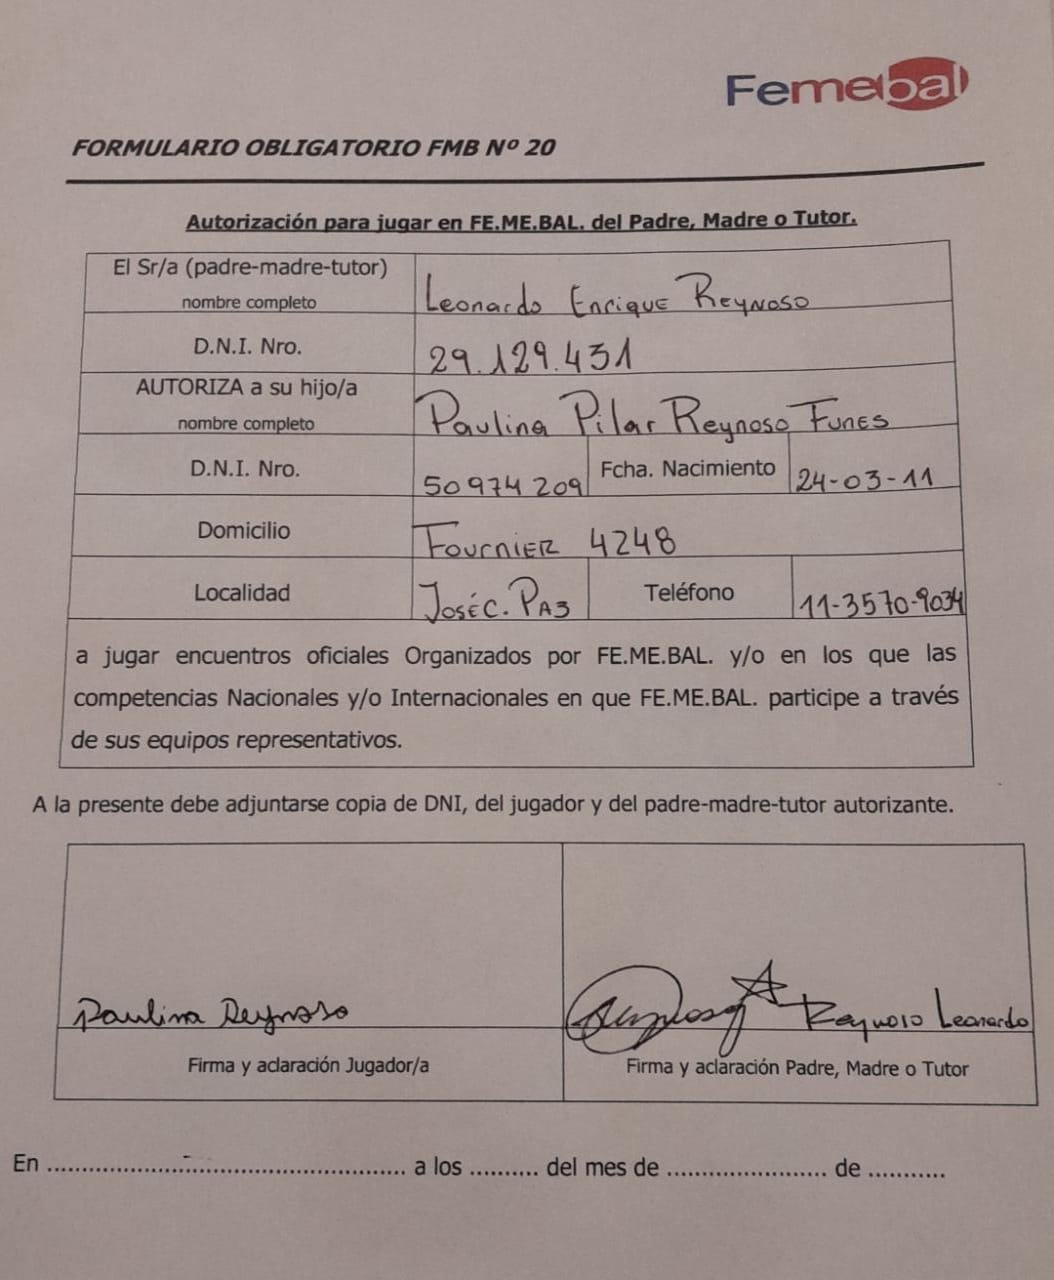 Femebal
FORMULARIO OBLIGATORIO FMB Nº 20
Autorización para jugar en FE.ME.BAL. del Padre, Madre o Tutor.
El Sr/a (padre-madre-tutor)
nombre completo
Leonardo Enrique Reynoso
D.N.I. Nro.
29.129.431
AUTORIZA a su hijo/a
nombre completo
Paulina Pilar Reynoso Funes
D.N.I. Nro.
50974209
Fcha. Nacimiento
24-03-11
Domicilio
Fournier 4248
Localidad
José C. Paz
Teléfono
11-3570-9034
a jugar encuentros oficiales Organizados por FE.ME.BAL. y/o en los que las
competencias Nacionales y/o Internacionales en que FE.ME.BAL. participe a través
de sus equipos representativos.
A la presente debe adjuntarse copia de DNI, del jugador y del padre-madre-tutor autorizante.
Paulina Reynoso
Reynoso Leonardo
Firma y aclaración Jugador/a
Firma y aclaración Padre, Madre o Tutor
En ........................................................ a los .......... del mes de ....................... de ...........